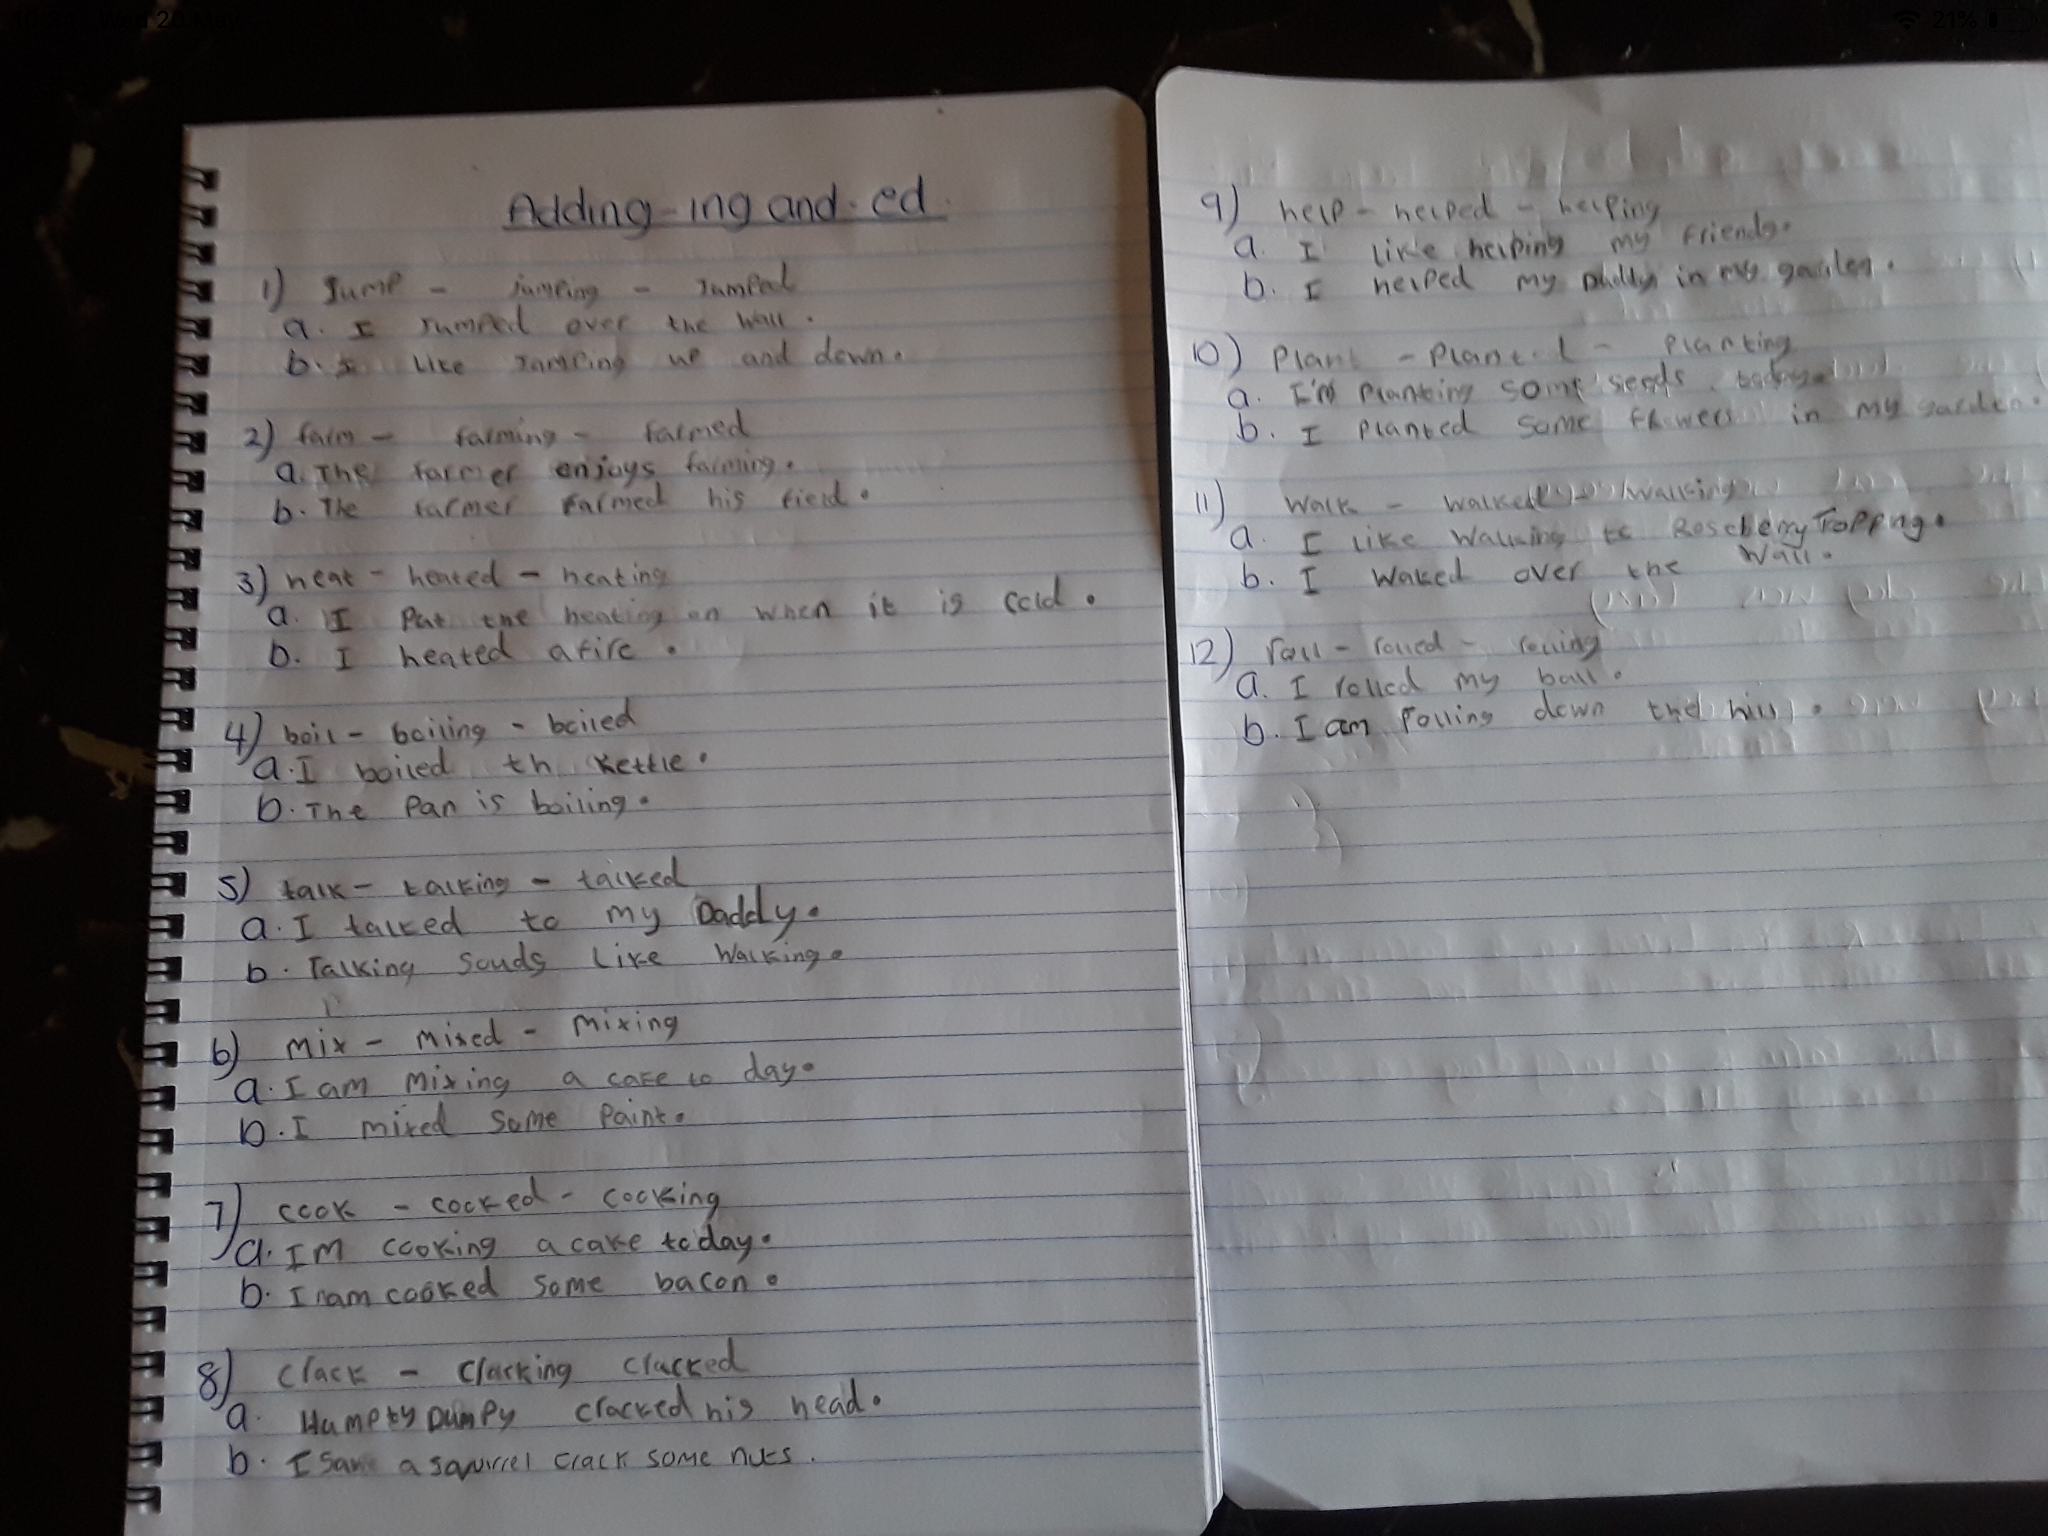 Wed 20 May
21%
Adding -ing and -ed.
1) Jump - jumping - Jumped
a. I Jumped over the wall.
b. I like Jumping up and down.
2) farm - farming - farmed
a. The farmer enjoys farming.
b. The farmer farmed his field.
3) heat - heated - heating
a. I Put the heating on when it is cold.
b. I heated a fire.
4) boil - boiling - boiled
a. I boiled th kettle.
b. The Pan is boiling.
5) talk - talking - talked
a. I talked to my Daddy.
b. Talking souds like walking.
6) mix - mixed - mixing
a. I am mixing a cake to day.
b. I mixed some Paint.
7) cook - cooked - cooking
a. IM cooking a cake today.
b. I cooked some bacon.
8) crack - cracking cracked
a. Humpty Dumpy cracked his head.
b. I saw a squirrel crack some nuts.
9) help - helped - helping
a. I like helping my friends.
b. I helped my in my garden.
10) Plant - Planted - Planting
a. I'm Planting some seeds today.
b. I Planted some flowers in my garden.
11) walk - walked - walking
a. I like walking to Roseberry Topping.
b. I waked over the wall.
12) roll - rolled - rolling
a. I rolled my ball.
b. I am rolling down the hill.